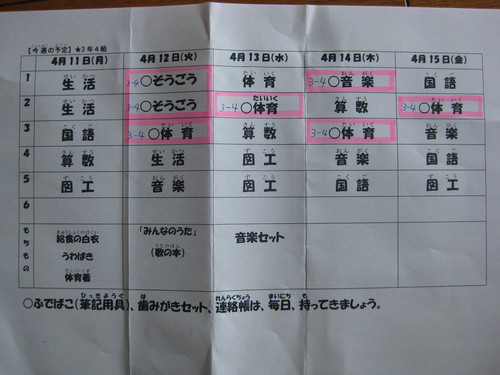 【今週の予定】★3年4組
4月11日(月) 4月12日(火) 4月13日(水) 4月14日(木) 4月15日(金)
1 生活 3-4○そうごう 体育 3-4○音楽 国語
2 生活 3-4○そうごう 3-4○体育 算数 3-4○体育
3 国語 3-4○体育 算数 3-4○体育 音楽
4 算数 生活 図工 算数 図工
5 図工 音楽 図工 国語 図工
6
もちもの 給食の白衣 「みんなのうた」 音楽セット
うわばき (歌の本)
体育着
○ふでばこ(筆記用具)、歯みがきセット、連絡帳は、毎日、持ってきましょう。